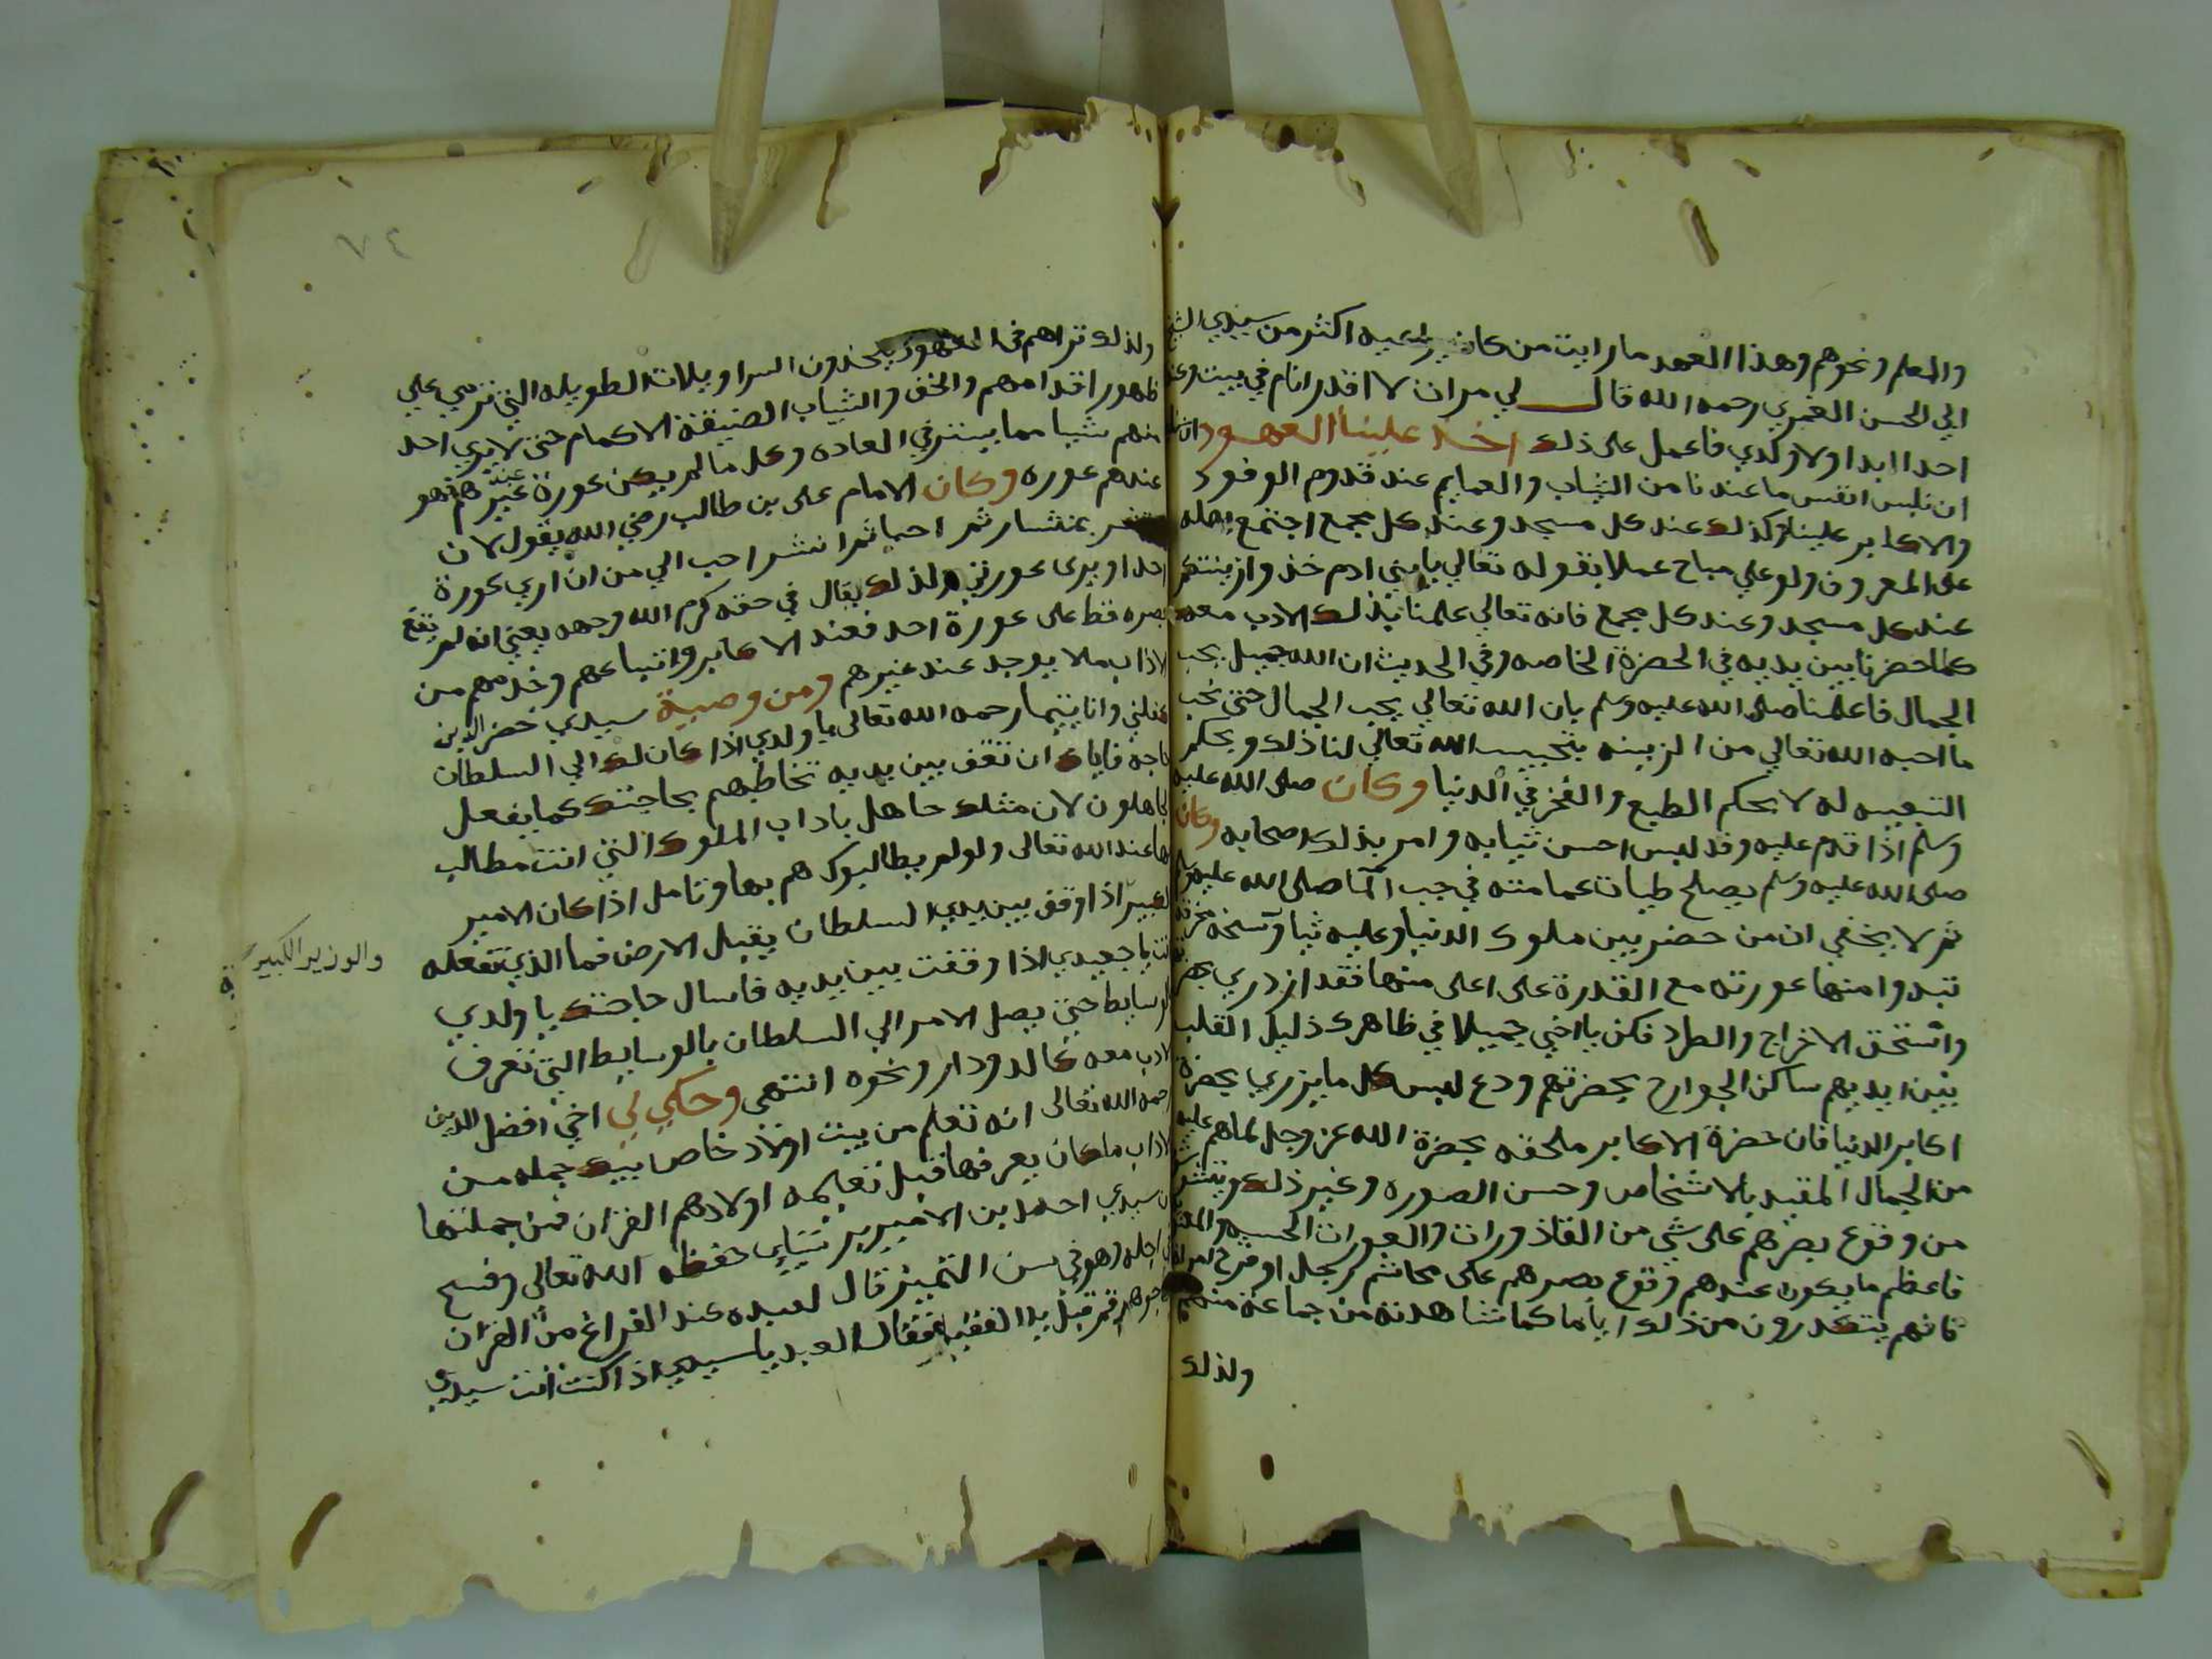 والمعلم ونحوهم وهذا العهد ما رايت من كان يراعيه اكثر من سيدي الشيخ
ابي الحسن الغمري رحمه الله قال لي مرات لا اقدر انام في بيت وعند
احدا ابدا ولا ولدي فاعمل على ذلك اخذ علينا العهود
ان نلبس انفس ما عندنا من الثياب والعمايم عند قدوم الوفود
والاكابر علينا وكذلك عند كل مسجد وعند كل مجمع اجتمع اهله
على المعروف ولو علي مباح عملا بقوله تعالي يا بني ادم خذوا زينتكم
عند كل مسجد وعند كل مجمع فانه تعالي علمنا بذلك الادب معه
كلما حضرنا بين يديه في الحضرة الخاصه وفي الحديث ان الله جميل يحب
الجمال فاعلمنا صلى الله عليه وسلم بان الله تعالي يحب الجمال حتى نحب
ما احبه الله تعالي من الزينه بتحبيب الله تعالي لنا ذلك وبحكم
التبعيه له لا بحكم الطبع والفخر في الدنيا وكان صلى الله عليه
وسلم اذا قدم عليه وفد لبس احسن ثيابه وامر بذلك اصحابه وكان
صلى الله عليه وسلم يصلح طيات عمامته في حب الما صلى الله عليه وسلم
ثم لا يخفي ان من حضر بين ملوك الدنيا وعليه ثياب وسخه مخرقه
تبدوا منها عورته مع القدرة على اعلى منها فقد ازدري بهم
واستحق الاخراج والطرد فكن يا اخي جميلا في ظاهرك ذليل القلب
بين ايديهم ساكن الجوارح بحضرتهم ودع لبس كل ما يزري بحضرة
اكابر الدنيا فان حضرة الاكابر ملحقه بحضرة الله عز وجل لما هم عليه
من الجمال المقيد بالاشخاص وحسن الصوره وغير ذلك
من وقوع بصرهم على شي من القاذورات والعورات الحسيه
فاعظم ما يكون عندهم وقوع بصرهم على محاشم رجل او فرج امراة
فانهم يتكدرون من ذلك اياما كما شاهدته من جماعة منهم
ولذلك
٧٤
ولذلك تراهم في يتخذون السراويلات الطويله التي ترمي علي
ظهور اقدامهم والخف والثياب الضيقة الاكمام حتى لا يري احد
منهم شيا مما يستر في العاده وكل ما لم يكن عورة عند غيرهم فهو
عندهم عوره وكان الامام على بن طالب رضي الله يقول لان
انشر بمنشار ثم احيا ثم انشر احب الي من ان اري عورة
احد او يرى عورتي ولذلك يقال في حقه كرم الله وجهه يعني انه لم يقع
بصره قط على عورة احد فعند الاكابر واتباعهم وخدمهم من
الاداب ما لا يوجد عند غيرهم ومن وصية سيدي خضر الذين
كفلني وانا يتيما رحمه الله تعالى يا ولدي اذا كان لك الي السلطان
حاجة فاياك ان تقف بين يديه تخاطبهم بحاجتك كما يفعل
الجاهلون لان مثلك جاهل باداب الملوك التي انت مطالب
بها عند الله تعالى ولو لم يطالبوك هم بها وتامل اذا كان الامير
الكبير اذا وقف بين يدي السلطان يقبل الارض فما الذي تفعله
والوزير الكبير
انت يا جعيدي اذا وقفت بين يديه فاسال حاجتك يا ولدي
الوسايط حتى يصل الامر الي السلطان بالوسايط التي تعرف
الادب معه كالدودار ونحوه انتهى وحكي لي اخي افضل الدين
رحمه الله تعالى انه تعلم من بيت اولاد خاص بيك جمله من
الاداب ما كان يعرفها قبل تعليمه اولادهم القران فمن جملتها
ان سيدي احمد بن الامير حفظه الله تعالى وفسح
في اجله وهو في سن التمييز قال لعبده عند الفراغ من القران
قم قبل يد الفقيه فقال العبد يا سيدي اذا كنت انت سيدي